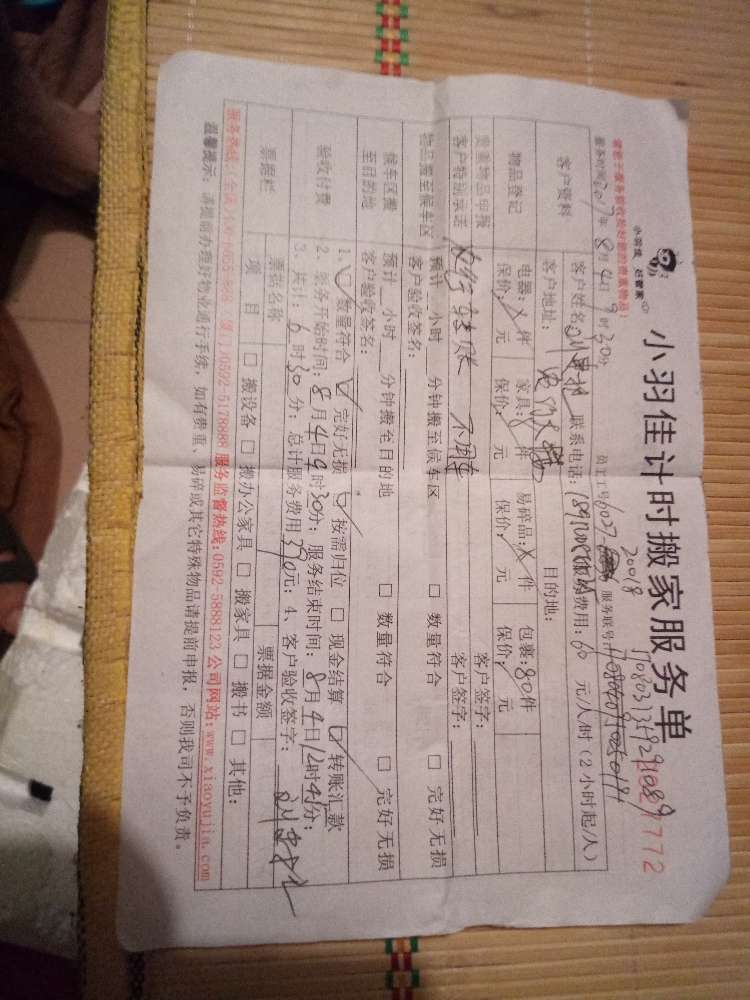 小羽佳 好管家
小羽佳计时搬家服务单
7772
20018
服务时间2017年8月4日9时30分 员工工号6027 服务联号
客户资料
客户姓名 联系电话: 服务费用:60元/人/时(2小时起/人)
客户地址: 目的地:
物品登记
电器: 件 家具: 件 易碎品: 件 包裹:80件
保价: 元 保价: 元 保价: 元 保价: 元
贵重物品申报 客户签字:
客户特别承诺 客户签字:
物品搬至候车区
预计 小时 分钟搬至候车区 □ 数量符合 □ 完好无损
客户验收签名:
候车区搬至目的地
预计 小时 分钟搬至目的地 □ 数量符合 □ 完好无损
客户验收签名:
验收付费
1、 数量符合 完好无损 按需归位 □ 现金结算 转账汇款
2、服务开始时间:8月4日9时30分;服务结束时间:8月4日12时45分;
3、共计:6时30分;总计服务费用390元;4、客户验收签字:
票据栏
票据名称 票据金额
项 目 □ 搬设备 □ 搬办公家具 □ 搬家具 □ 搬书 □ 其他:
服务监督热线:0592-5888123 公司网站:www.xiaoyujia.com
温馨提示:请提前办理好物业通行手续,如有贵重、易碎或其它特殊物品请提前申报,否则我司不予负责。